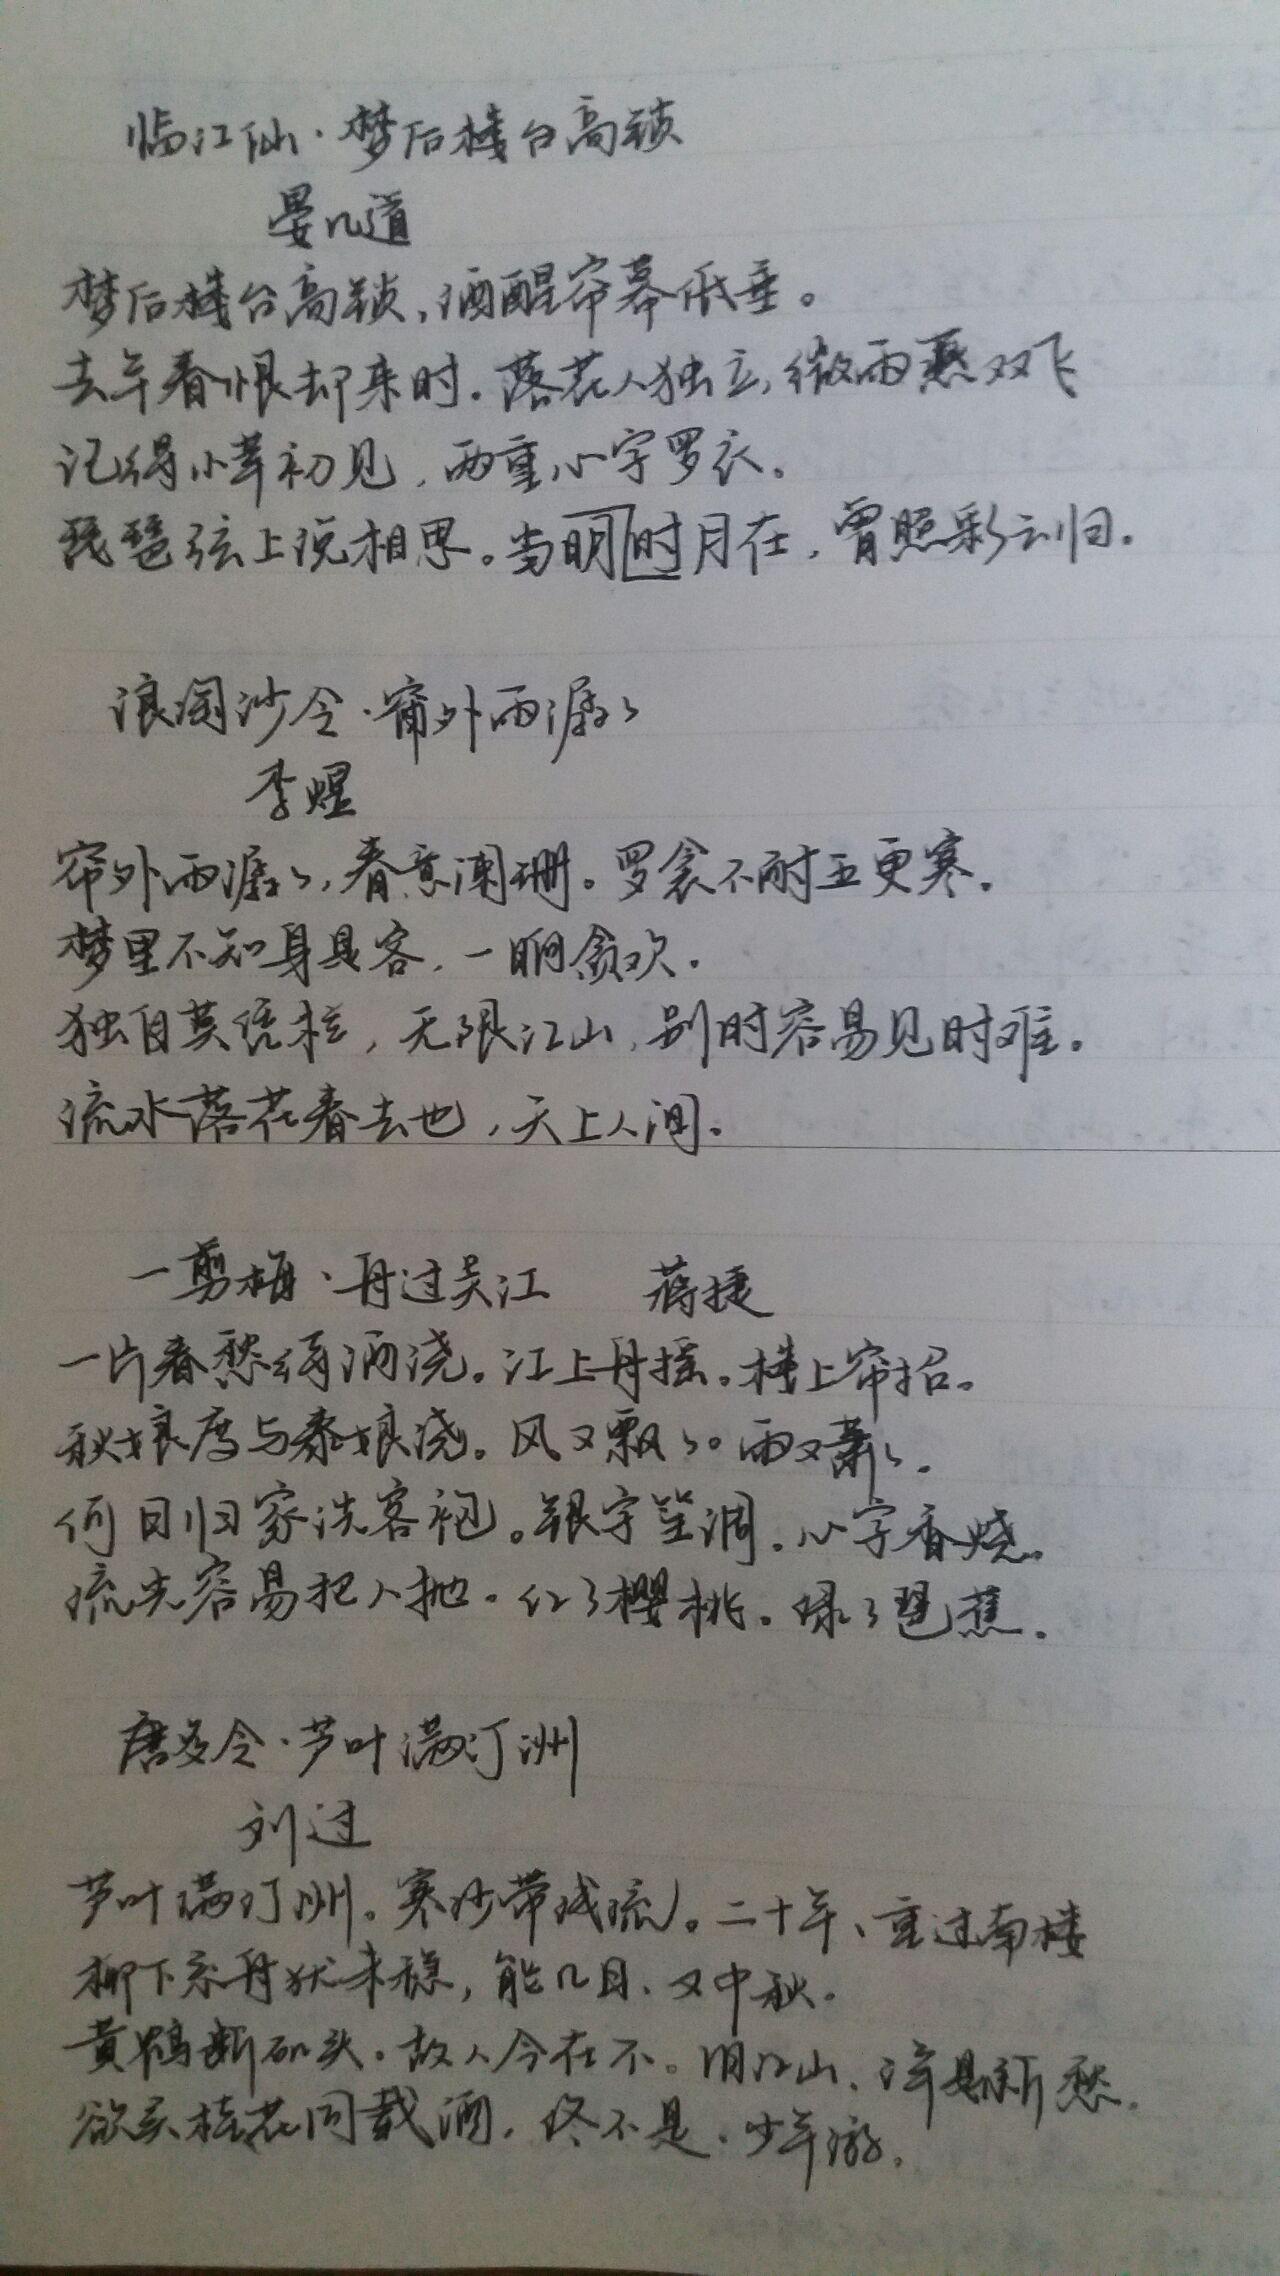 临江仙·梦后楼台高锁
晏几道
梦后楼台高锁，酒醒帘幕低垂。
去年春恨却来时。落花人独立，微雨燕双飞
记得小苹初见，两重心字罗衣。
琵琶弦上说相思。当明时月在，曾照彩云归。
浪淘沙令·帘外雨潺々
李煜
帘外雨潺々，春意阑珊。罗衾不耐五更寒。
梦里不知身是客，一晌贪欢。
独自莫凭栏，无限江山，别时容易见时难。
流水落花春去也，天上人间。
一剪梅·舟过吴江 蒋捷
一片春愁待酒浇。江上舟摇。楼上帘招。
秋娘度与泰娘浇。风又飘々。雨又萧々。
何日归家洗客袍。银字笙调。心字香烧。
流光容易把人抛。红了樱桃。绿了琶蕉。
唐多令·芦叶满汀洲
刘过
芦叶满汀洲。寒沙带浅流。二十年、重过南楼
柳下系舟犹未稳，能几日、又中秋。
黄鹤断矶头。故人今在不。旧江山、浑是新愁。
欲买桂花同载酒，终不是、少年游。